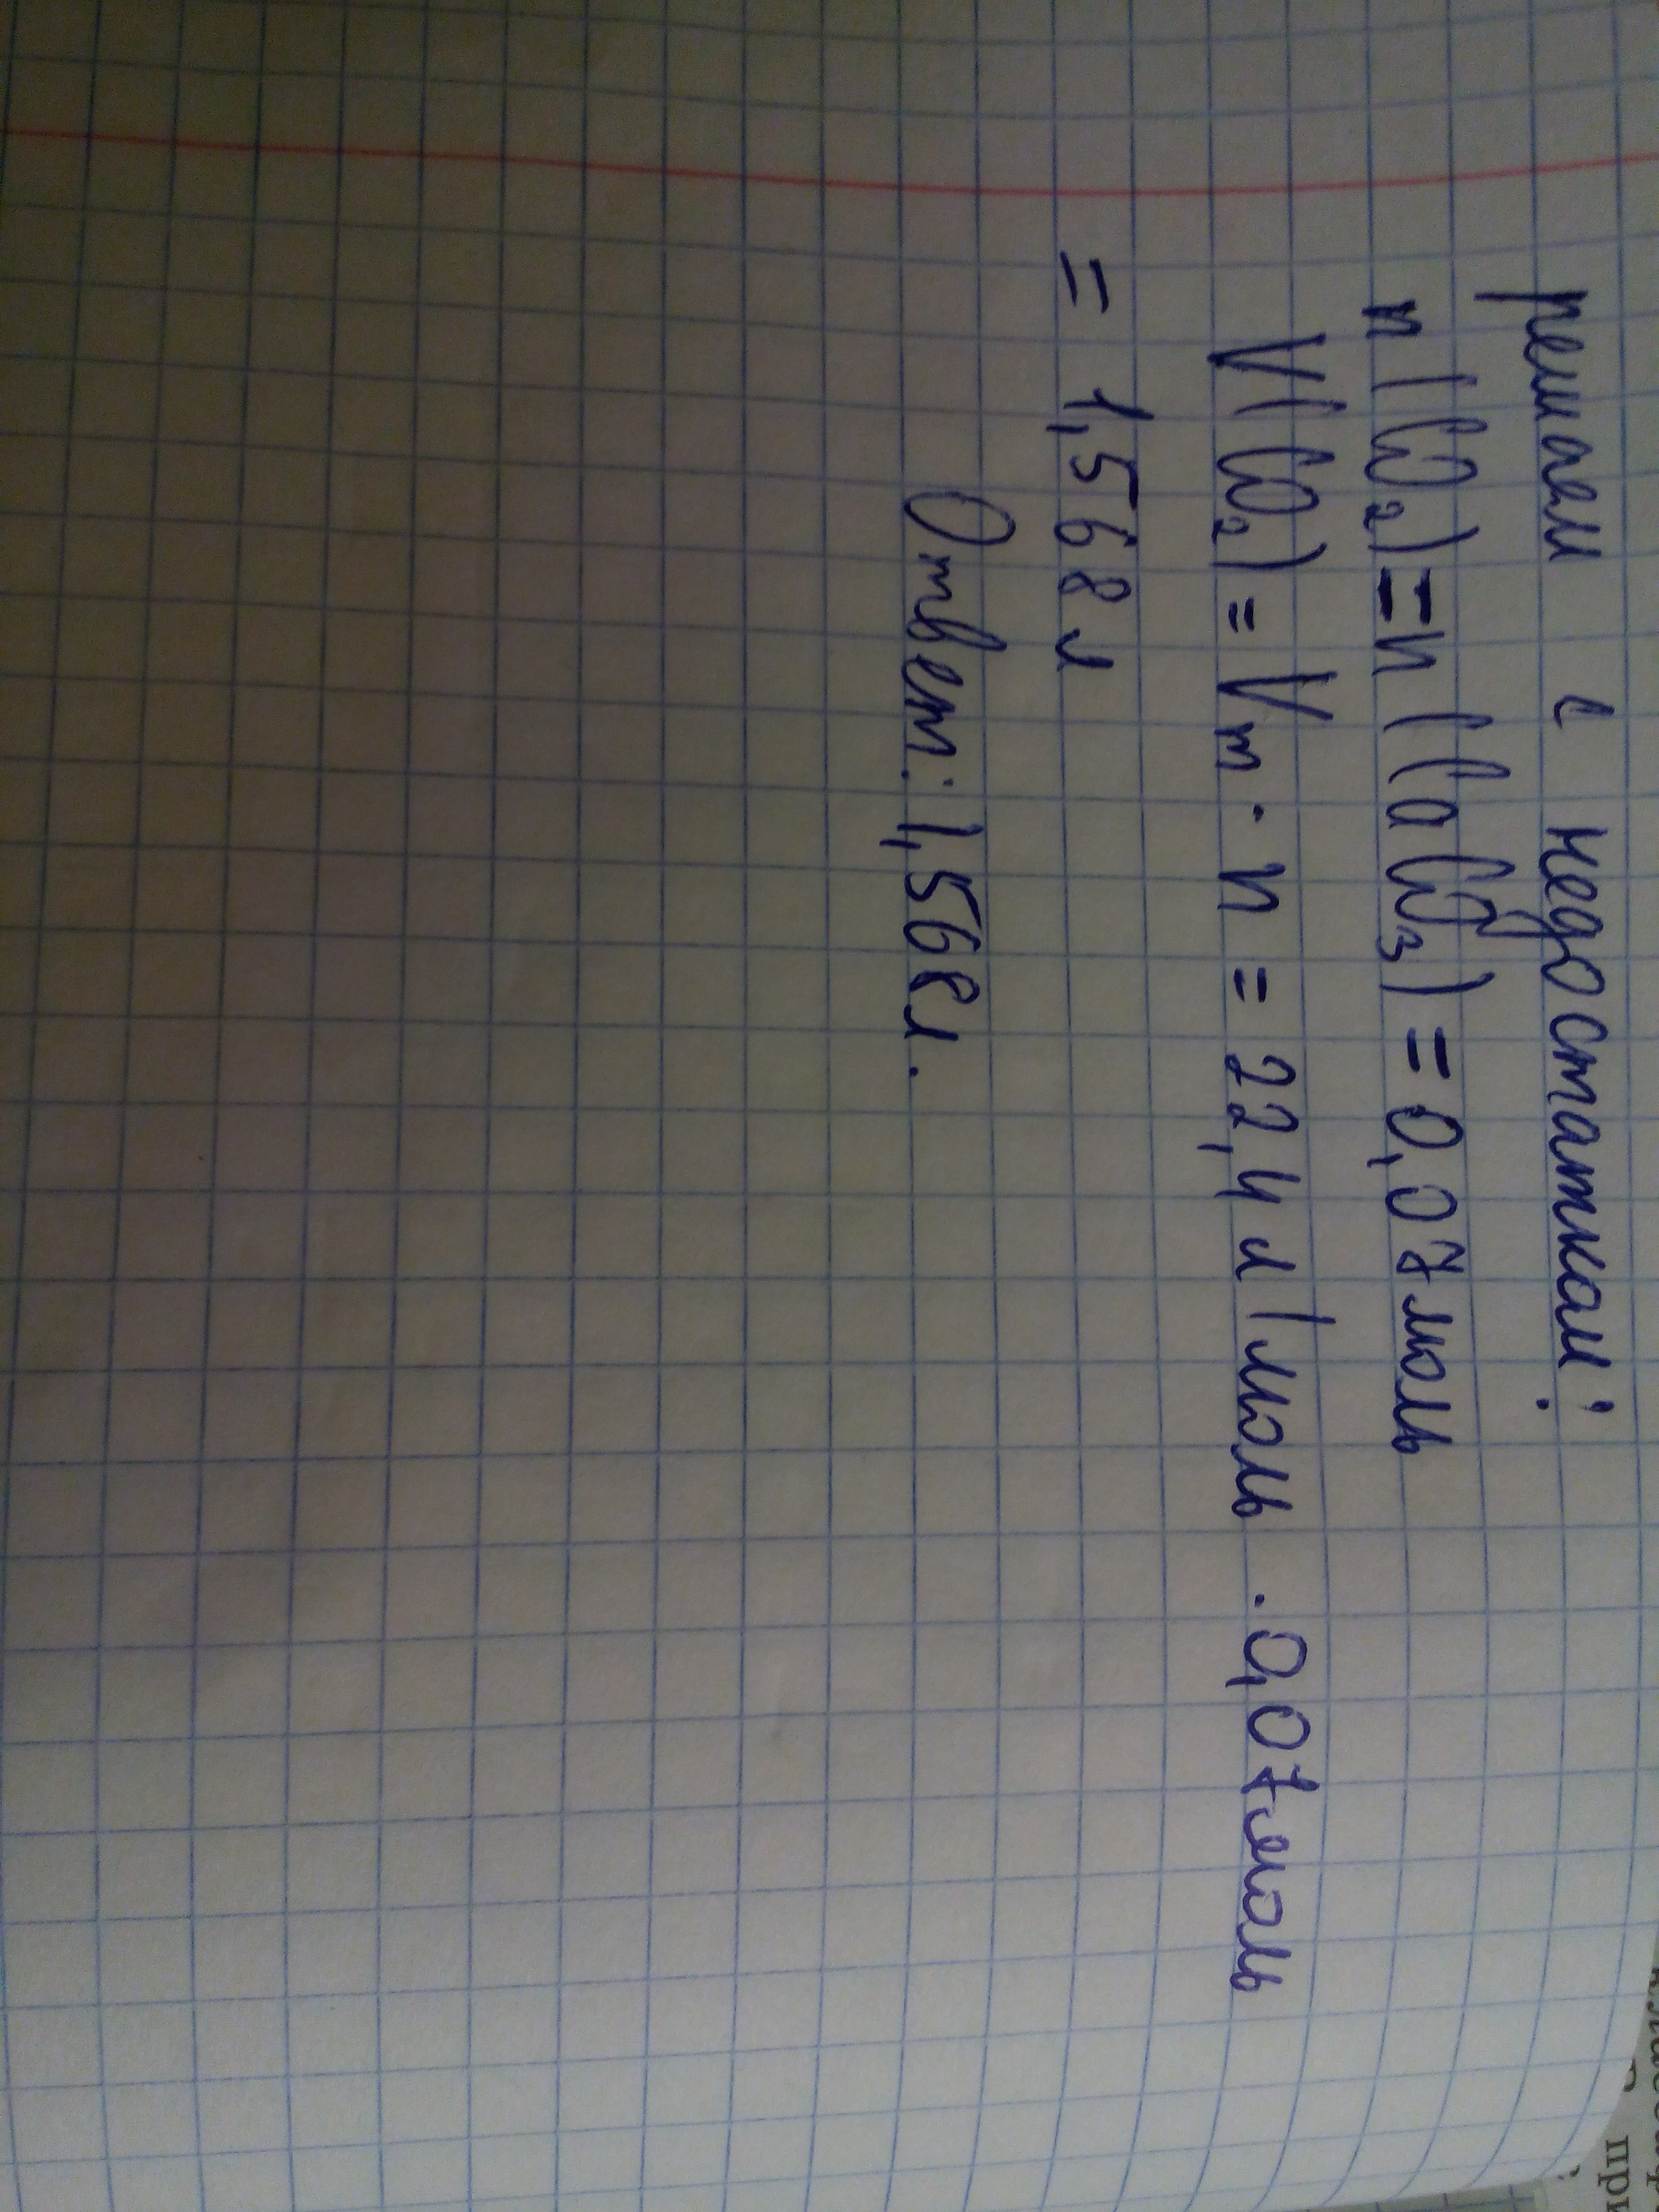 решаем с недостатком:
n(CO₂)=n(CaCO₃)=0,07моль
V(CO₂)=Vm·n=22,4л/моль·0,07моль
=1,568л
Ответ:1,568л.